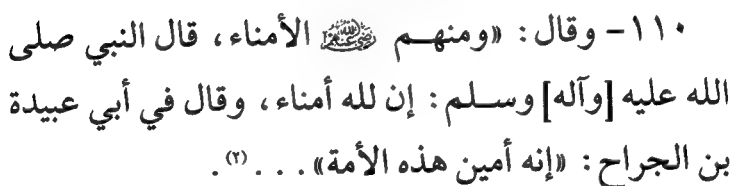 ١١٠- وقال: «ومنهم رضي الله عنهم الأمناء، قال النبي صلى
الله عليه [وآله] وسلم: إن لله أمناء، وقال في أبي عبيدة
بن الجراح: «إنه أمين هذه الأمة». . .(٢).